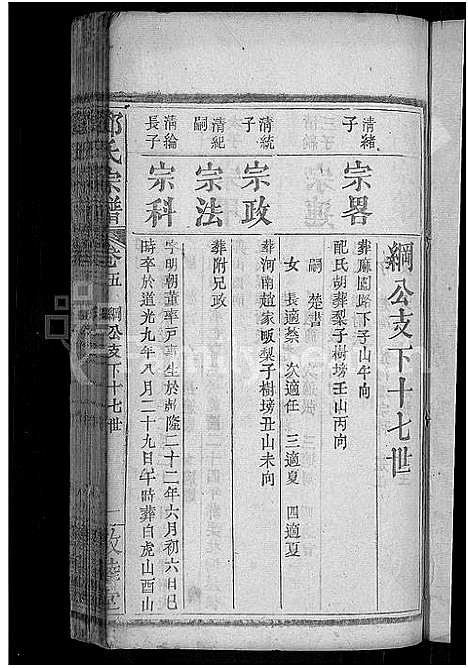 綱公支下十七世
清緒
子
宗畧
葬麻園路下子山午向
配氏胡葬梨子樹塝壬山丙向
嗣 楚書
女 長適蔡 次適任 三適夏 四適夏
清統
子
宗政
葬河南趙家畈梨子樹塝丑山未向
清紀
嗣
宗法
葬附兄政
清綸
長子
宗科
字明朝董率戸 生於乾隆二十二年六月初六日巳
時卒於道光九年八月二十九日午時葬白虎山酉山
氏宗譜
卷五 綱公支下十七世
敦睦堂